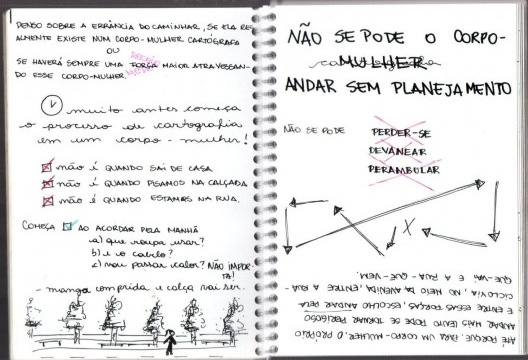 PENSO SOBRE A ERRÂNCIA DO CAMINHAR, SE ELA RE
ALMENTE EXISTE NUM CORPO-MULHER CARTÓGRAFA
OU
SE HAVERÁ SEMPRE UMA FORÇA MAIOR ATRAVESSAN-
DO ESSE CORPO-MULHER.
muito antes começa
o processo de cartografia
em um corpo-mulher!
não é QUANDO SAI DE CASA
não é QUANDO PISAMOS NA CALÇADA
não é QUANDO ESTAMOS NA RUA.
COMEÇA AO ACORDAR PELA MANHÃ
a) que roupa usar?
b) e o cabelo?
c) vou passar calor? NÃO IMPOR
TA!
- manga comprida e calça vai ser.
NÃO SE PODE O CORPO-
MULHER
ANDAR SEM PLANEJAMENTO
NÃO SE PODE PERDER-SE
DEVANEAR
PERAMBULAR
X
ATÉ PORQUE PARA UM CORPO-MULHER, O PRÓPRIO
ANDAR MAIS LENTO PODE SE TORNAR PERIGOSO
E ENTRE ESSAS FORÇAS, ESCOLHAS, ANDAR PELA
CICLOVIA, NO MEIO DA AVENIDA, ENTRE A RUA
QUE-VAI E A RUA-QUE-VEM.